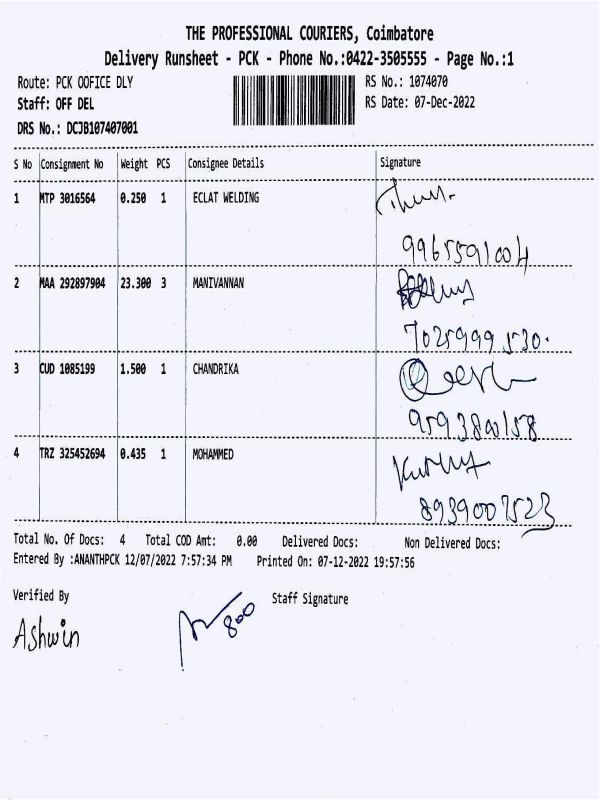 THE PROFESSIONAL COURIERS, Coimbatore
Delivery Runsheet - PCK - Phone No.:0422-3505555 - Page No.:1
Route: PCK OOFICE DLY
RS No.: 1074070
Staff: OFF DEL
RS Date: 07-Dec-2022
DRS No.: DCJB107407001
S No Consignment No Weight PCS Consignee Details Signature
1 MTP 3016564 0.250 1 ECLAT WELDING
9965591004
2 MAA 292897904 23.300 3 MANIVANNAN
7025999530.
3 CUD 1085199 1.500 1 CHANDRIKA
9593800158
4 TRZ 325452694 0.435 1 MOHAMMED
8939007523
Total No. Of Docs: 4 Total COD Amt: 0.00 Delivered Docs: Non Delivered Docs:
Entered By :ANANTHPCK 12/07/2022 7:57:34 PM Printed On: 07-12-2022 19:57:56
Verified By Staff Signature
Ashwin
800